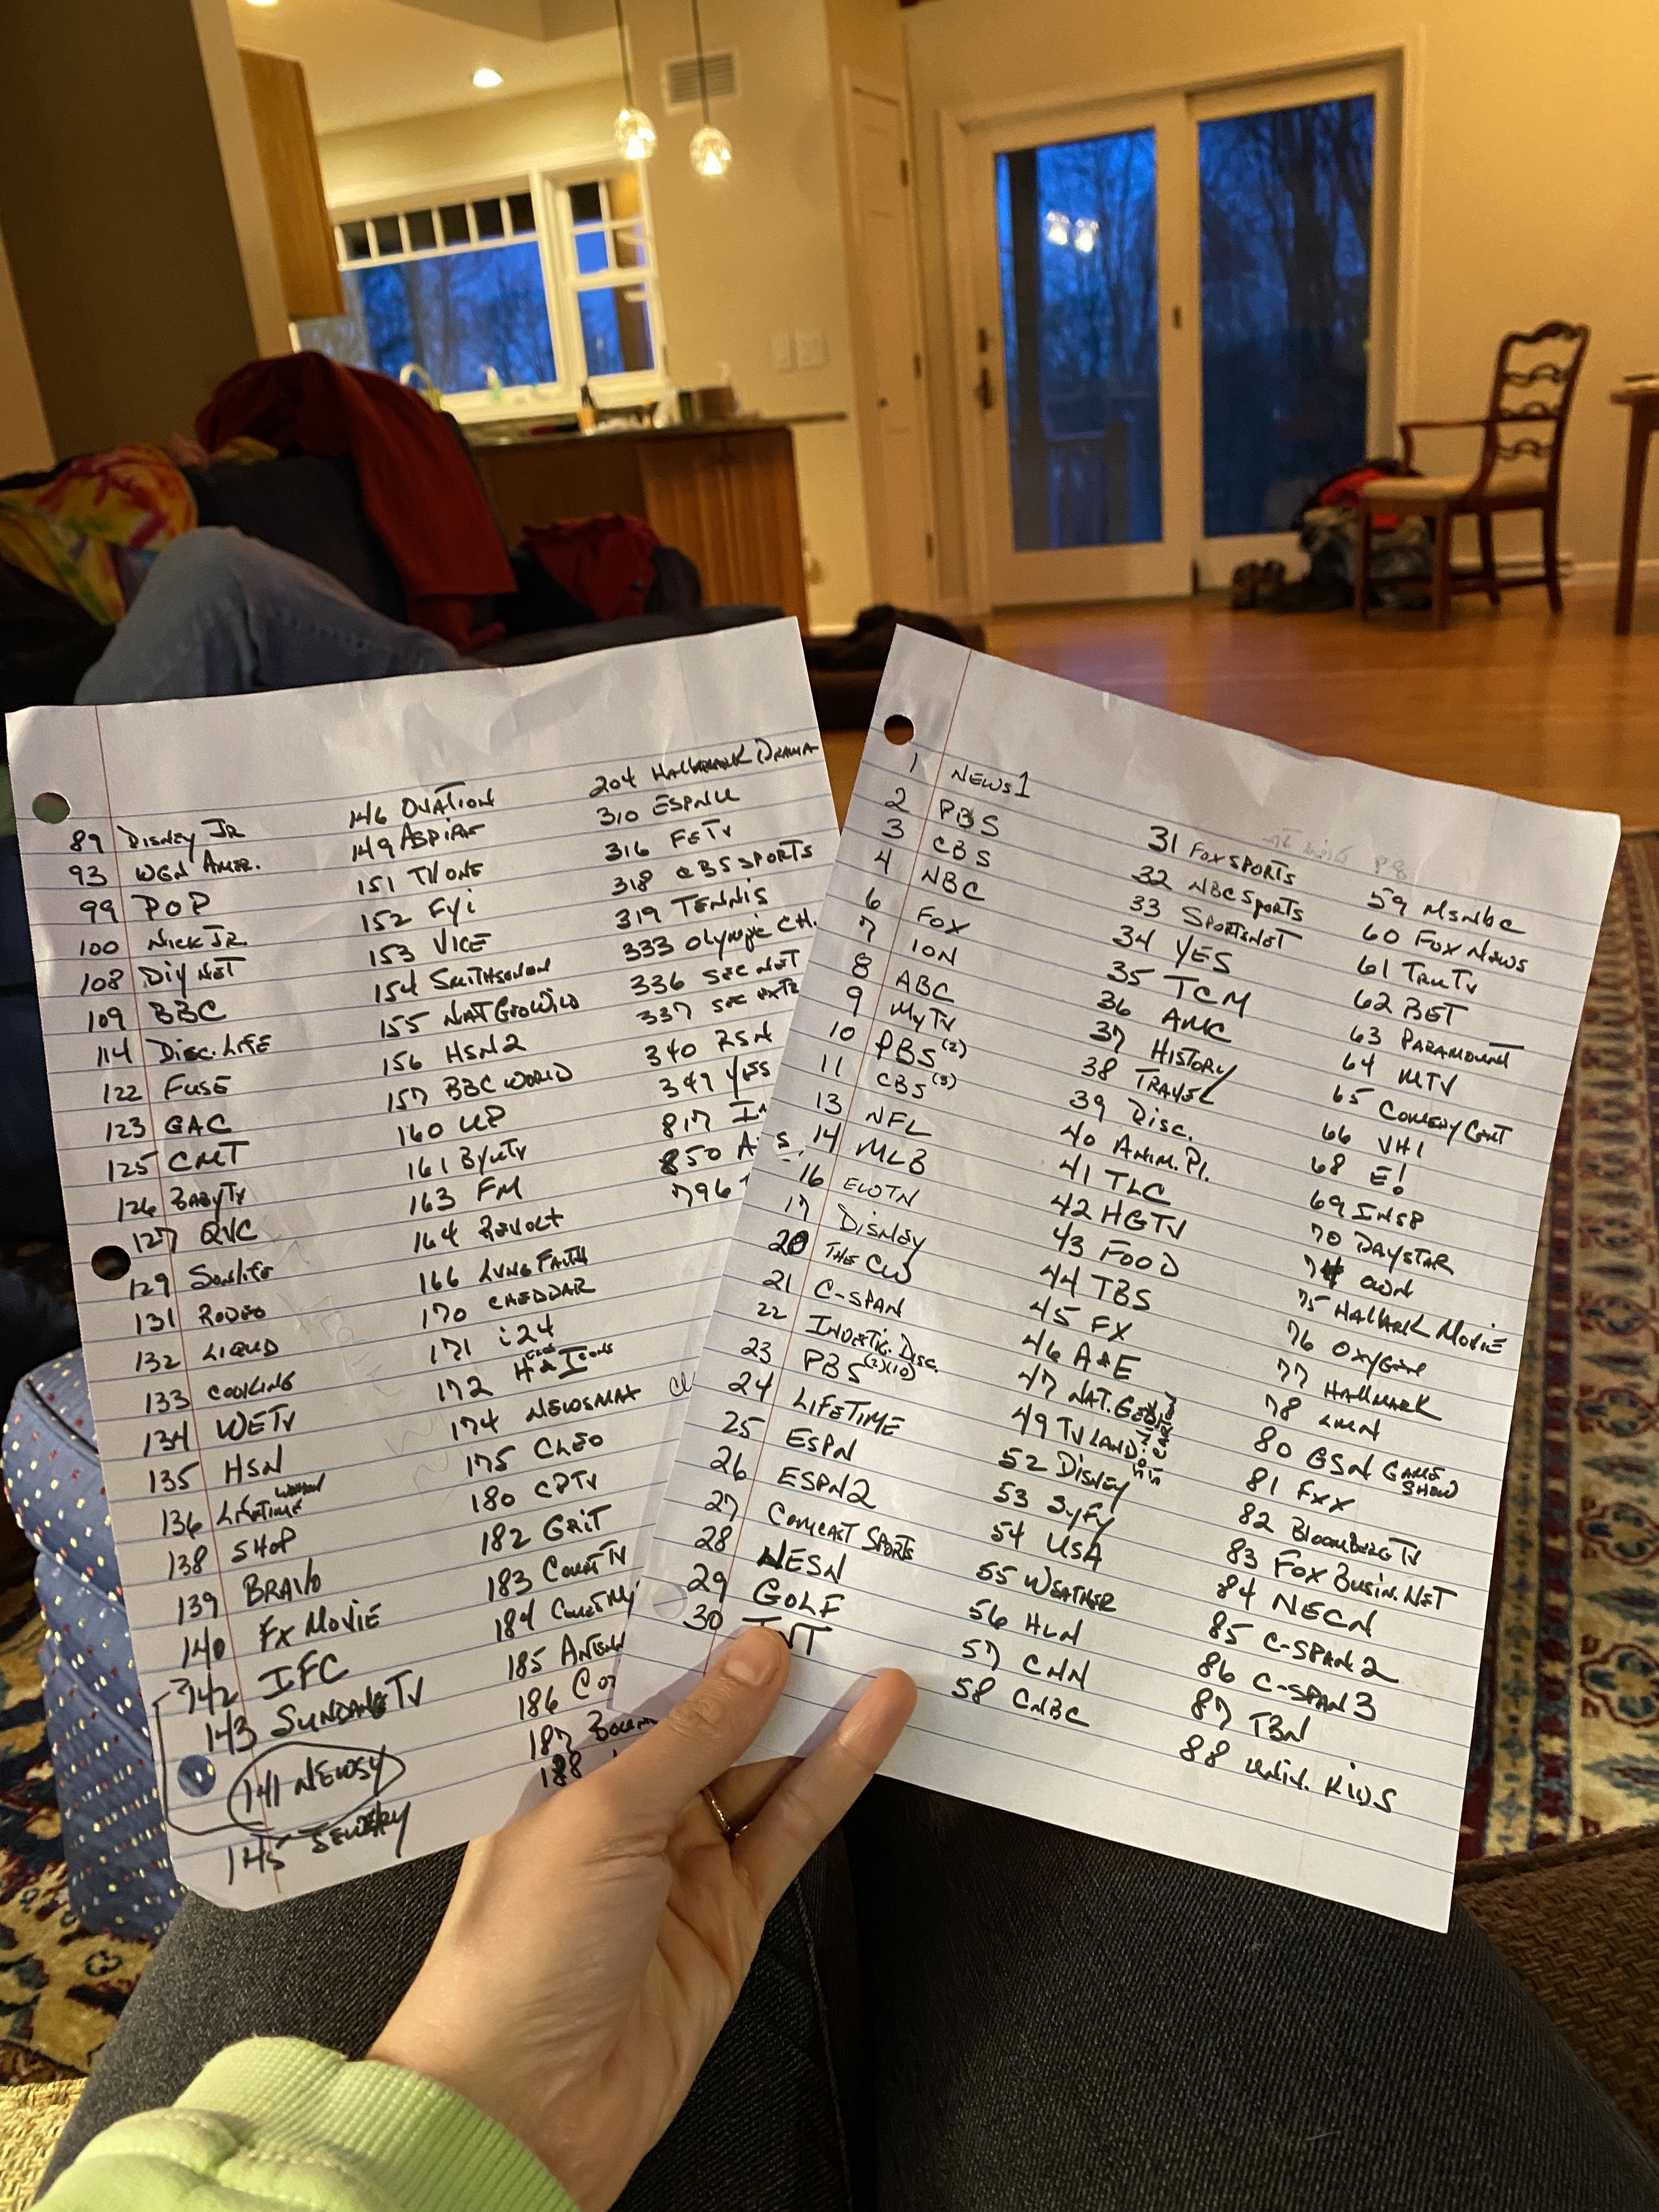 89 DISNEY JR
93 WGN AMER.
99 POP
100 NICK JR.
108 DIY NET
109 BBC
114 DISC. LIFE
122 FUSE
123 GAC
125 CMT
126 BABYTV
127 QVC
129 SONLIFE
131 RODEO
132 LIQUD
133 COOKING
134 WETV
135 HSN
136 LIFETIME WOMAN
138 SHOP
139 BRAVO
140 FX MOVIE
142 IFC
143 SUNDANCE TV
141 NEWSY
145 JEWELRY
146 OVATION
149 ASPIRE
151 TV ONE
152 FYi
153 VICE
154 SMITHSONIAN
155 NAT GEO WILD
156 HSN 2
157 BBC WORLD
160 UP
161 BYUTV
163 FM
164 REVOLT
166 LVNG FAITH
170 CHEDDAR
171 i24
172 H & ICONS
174 NEWSMAX
175 CLEO
180 CPTV
182 GRIT
183 COURT TV
184
185
186
187
188
204 HALLMARK DRAMA
310 ESPNU
316 FETV
318 CBS SPORTS
319 TENNIS
333 OLYMPIC CH.
336 SEC NET
337 SEC EXTR
340 RSN
349 YES
817
850
796
1 NEWS1
2 PBS
3 CBS
4 NBC
6 FOX
7 ION
8 ABC
9 MYTV
10 PBS (2)
11 CBS (3)
13 NFL
14 MLB
16 EWTN
17 DISNEY
20 THE CW
21 C-SPAN
22 INVESTIG. DISC.
23 PBS (2)(10)
24 LIFETIME
25 ESPN
26 ESPN2
27 COMCAST SPORTS
28 NESN
29 GOLF
30 TNT
31 FOX SPORTS
32 NBC SPORTS
33 SPORTSNET
34 YES
35 TCM
36 AMC
37 HISTORY
38 TRAVEL
39 DISC.
40 ANIM. PL.
41 TLC
42 HGTV
43 FOOD
44 TBS
45 FX
46 A&E
47 NAT. GEO
49 TV LAND
52 DISNEY
53 SYFY
54 USA
55 WEATHER
56 HLN
57 CNN
58 CNBC
59 MSNBC
60 FOX NEWS
61 TRUTV
62 BET
63 PARAMOUNT
64 MTV
65 COMEDY CENT
66 VH1
68 E!
69 INSP
70 DAYSTAR
74 OWN
75 HALLMARK MOVIE
76 OXYGENE
77 HALLMARK
78 LMN
80 GSN GAME SHOW
81 FXX
82 BLOOMBERG TV
83 FOX BUSIN. NET
84 NECN
85 C-SPAN 2
86 C-SPAN 3
87 TBN
88 UNIV. KIDS